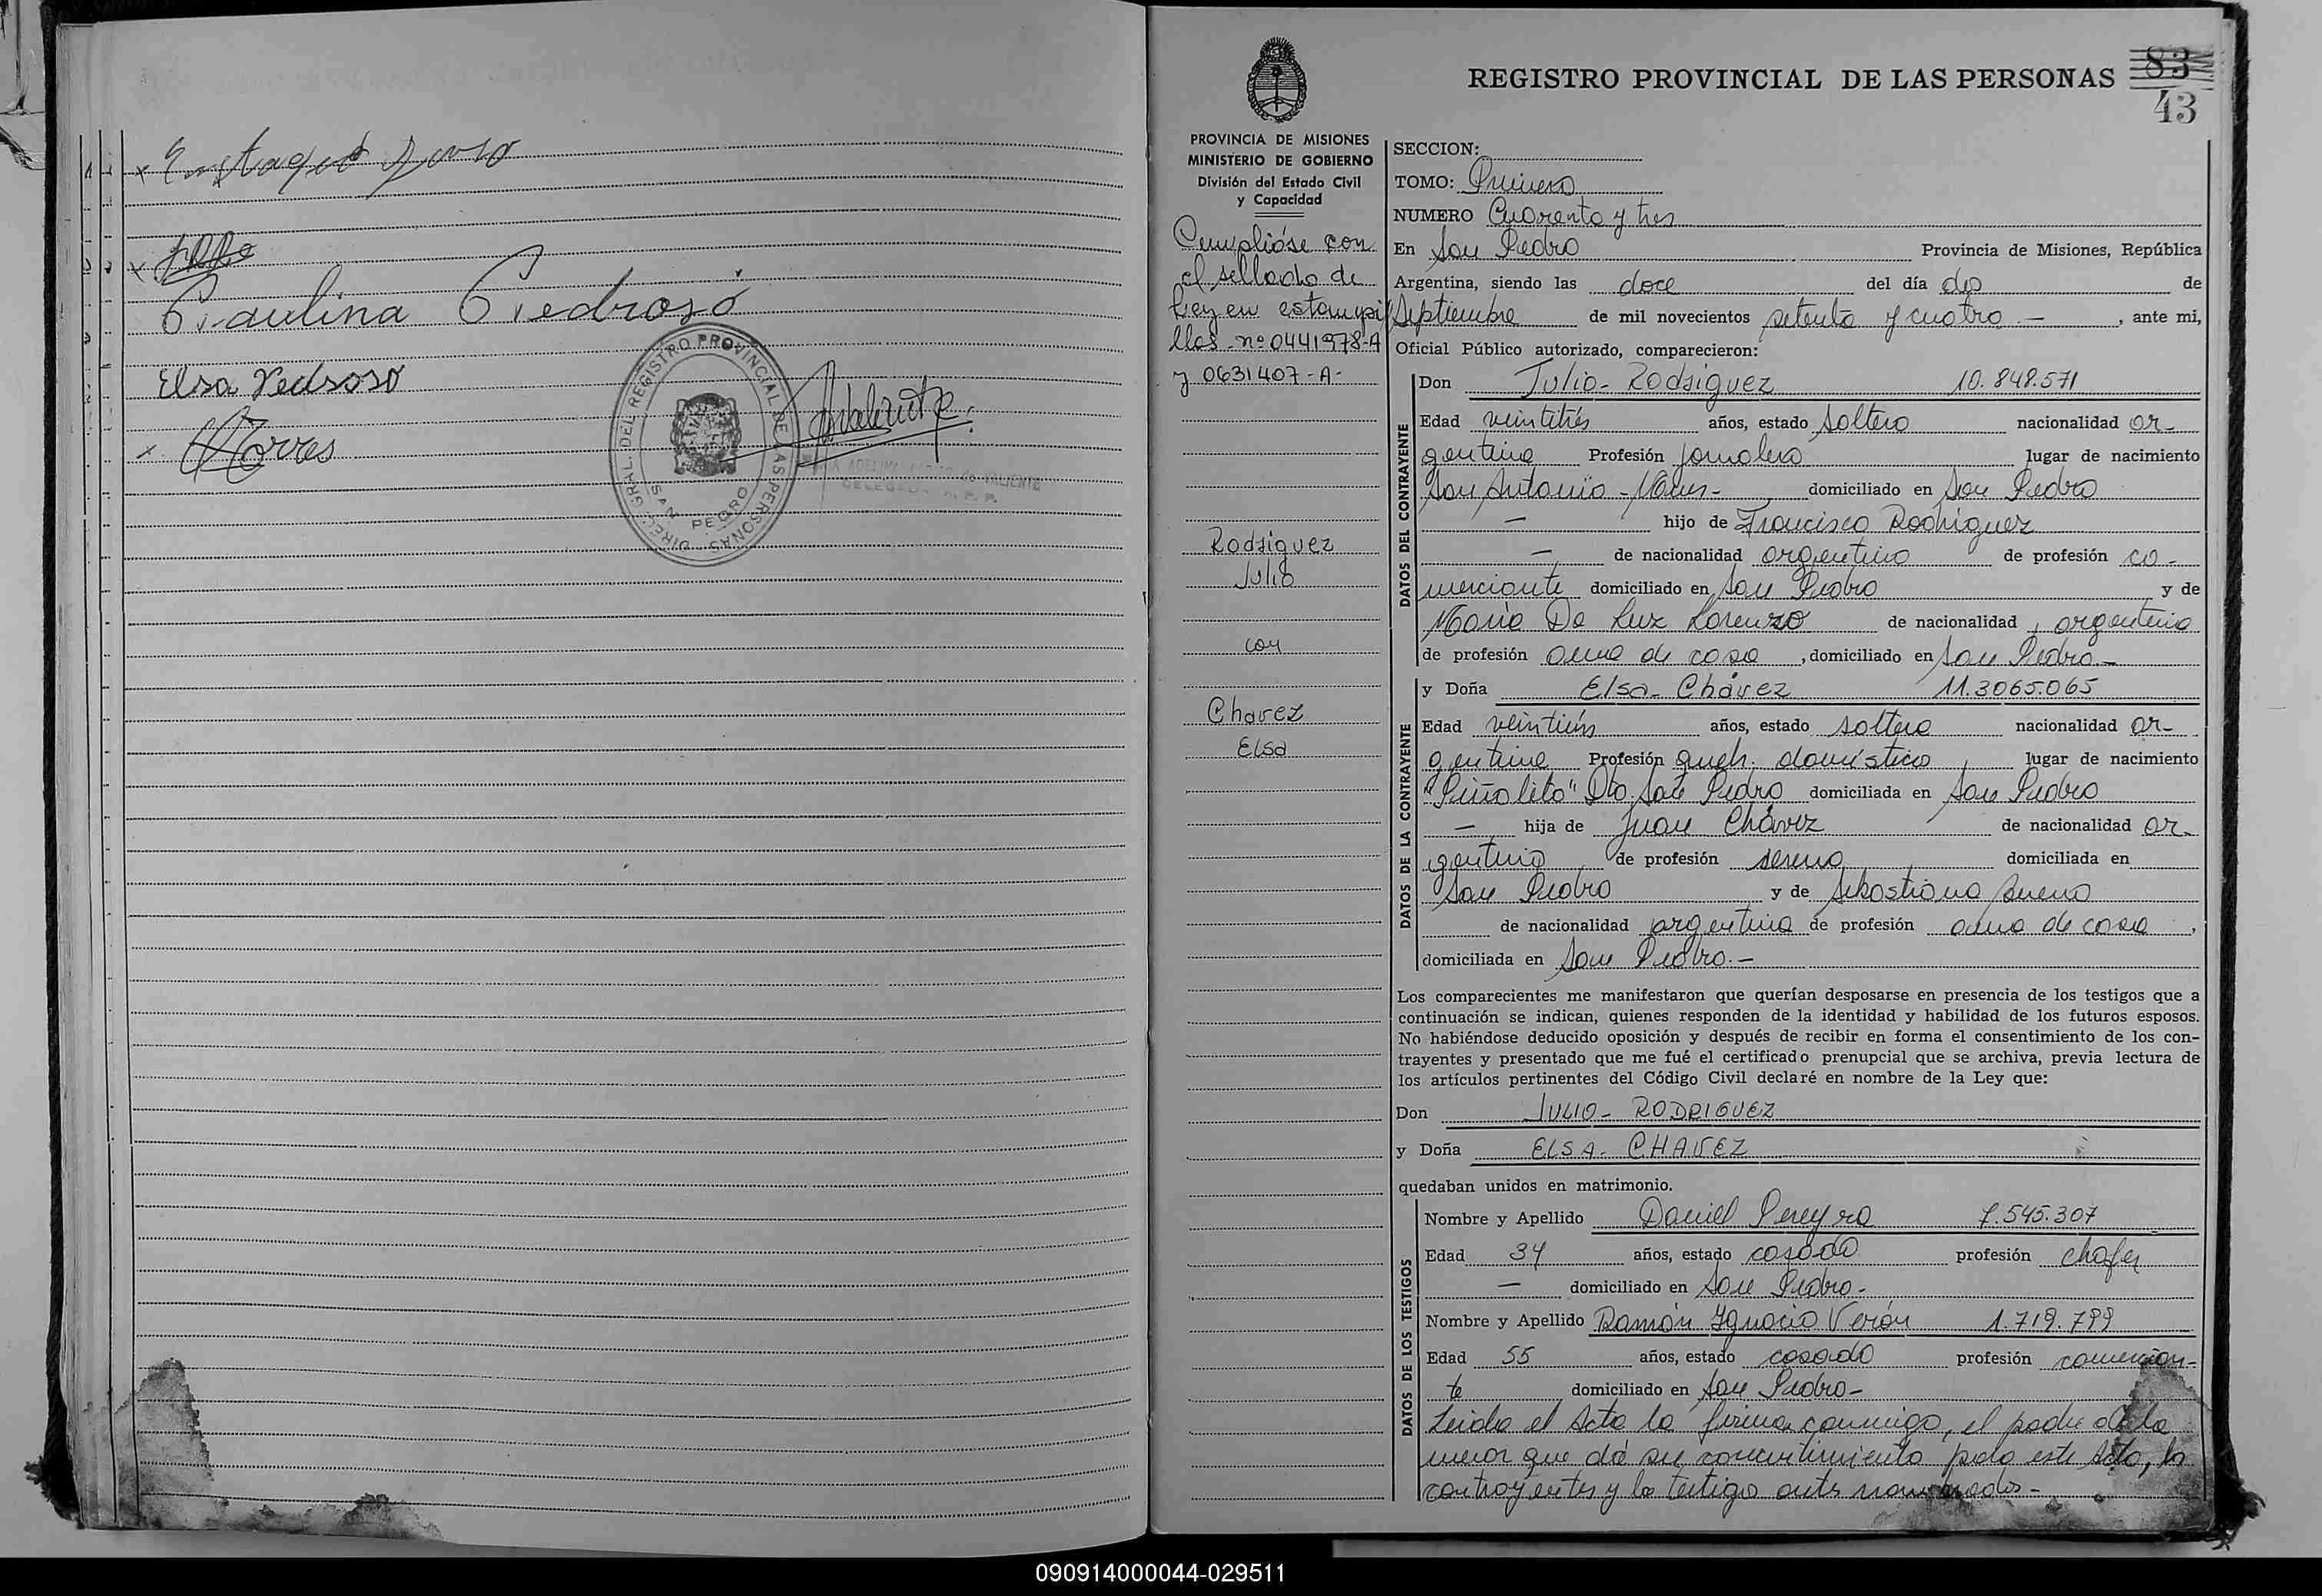 Paulina Pedroso
Elsa Pedroso
Torres
DIREC. GRAL. DEL REGISTRO PROVINCIAL DE LAS PERSONAS
SAN PEDRO
REGISTRO PROVINCIAL DE LAS PERSONAS 83
43
PROVINCIA DE MISIONES
MINISTERIO DE GOBIERNO
División del Estado Civil
y Capacidad
Cumplióse con
el sellado de
Ley en estampi
llas nº 0441978-A
y 0631407-A-
Rodriguez
Julio
con
Chavez
Elsa
SECCION:
TOMO: Primero
NUMERO Cuarenta y tres
En San Pedro Provincia de Misiones, República
Argentina, siendo las doce del día dos de
Septiembre de mil novecientos setenta y cuatro.— , ante mi,
Oficial Público autorizado, comparecieron:
DATOS DEL CONTRAYENTE
Don Julio- Rodriguez 10.848.571
Edad veintitrés años, estado soltero nacionalidad ar-
gentina Profesión jornalero lugar de nacimiento
San Antonio - Mnes- domiciliado en San Pedro
— hijo de Francisco Rodriguez
— de nacionalidad argentino de profesión co-
merciante domiciliado en San Pedro y de
María Da Luz Lorenzo de nacionalidad argentina
de profesión ama de casa , domiciliado en San Pedro.—
DATOS DE LA CONTRAYENTE
y Doña Elsa- Chávez 11.3065.065
Edad veintiún años, estado soltera nacionalidad ar-
gentina Profesión queh. doméstico lugar de nacimiento
"Piñalito" Dto. San Pedro domiciliada en San Pedro
— hija de Juan Chávez de nacionalidad ar-
gentino de profesión sereno domiciliada en
San Pedro y de Sebastiana Bueno
de nacionalidad argentina de profesión ama de casa ,
domiciliada en San Pedro.—
Los comparecientes me manifestaron que querían desposarse en presencia de los testigos que a
continuación se indican, quienes responden de la identidad y habilidad de los futuros esposos.
No habiéndose deducido oposición y después de recibir en forma el consentimiento de los con-
trayentes y presentado que me fué el certificado prenupcial que se archiva, previa lectura de
los artículos pertinentes del Código Civil declaré en nombre de la Ley que:
Don JULIO- RODRIGUEZ
y Doña ELSA- CHAVEZ
quedaban unidos en matrimonio.
DATOS DE LOS TESTIGOS
Nombre y Apellido Daniel Pereyra 7.545.307
Edad 34 años, estado casado profesión chofer
— domiciliado en San Pedro-
Nombre y Apellido Ramón Ignacio Verón 1.719.799
Edad 55 años, estado casado profesión comercian-
te domiciliado en San Pedro-
Leida el Acta la firman conmigo, el padre de la
menor que dá su consentimiento para este Acto, los
contrayentes y los testigos antes nombrados-
090914000044-029511